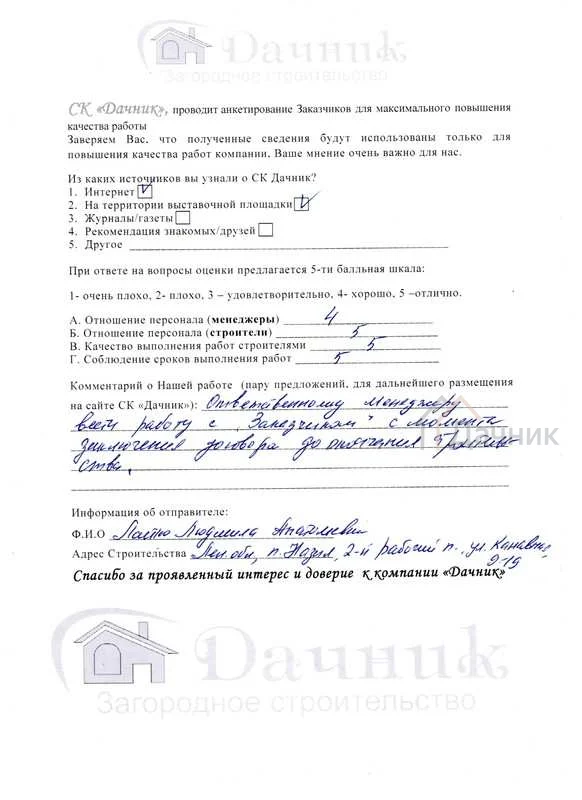 Дачник
Загородное строительство
СК «Дачник», проводит анкетирование Заказчиков для максимального повышения
качества работы
Заверяем Вас, что полученные сведения будут использованы только для
повышения качества работ компании. Ваше мнение очень важно для нас.
Из каких источников вы узнали о СК Дачник?
1. Интернет
2. На территории выставочной площадки
3. Журналы/газеты
4. Рекомендация знакомых/друзей
5. Другое
При ответе на вопросы оценки предлагается 5-ти балльная шкала:
1- очень плохо, 2- плохо, 3 – удовлетворительно, 4- хорошо, 5 –отлично.
А. Отношение персонала (менеджеры) 4
Б. Отношение персонала (строители) 5
В. Качество выполнения работ строителями 5
Г. Соблюдение сроков выполнения работ 5
Комментарий о Нашей работе (пару предложений, для дальнейшего размещения
на сайте СК «Дачник»): Ответственному менеджеру
вести работу с „Заказчиком" с момента
Дачник
заключения договора до окончания строитель
ства.
Информация об отправителе:
Ф.И.О Людмила Анатольевна
Адрес Строительства Лен обл, п. Назия, 2-й рабочий п., ул.
9-19
Спасибо за проявленный интерес и доверие к компании «Дачник»
Дачник
Загородное строительство